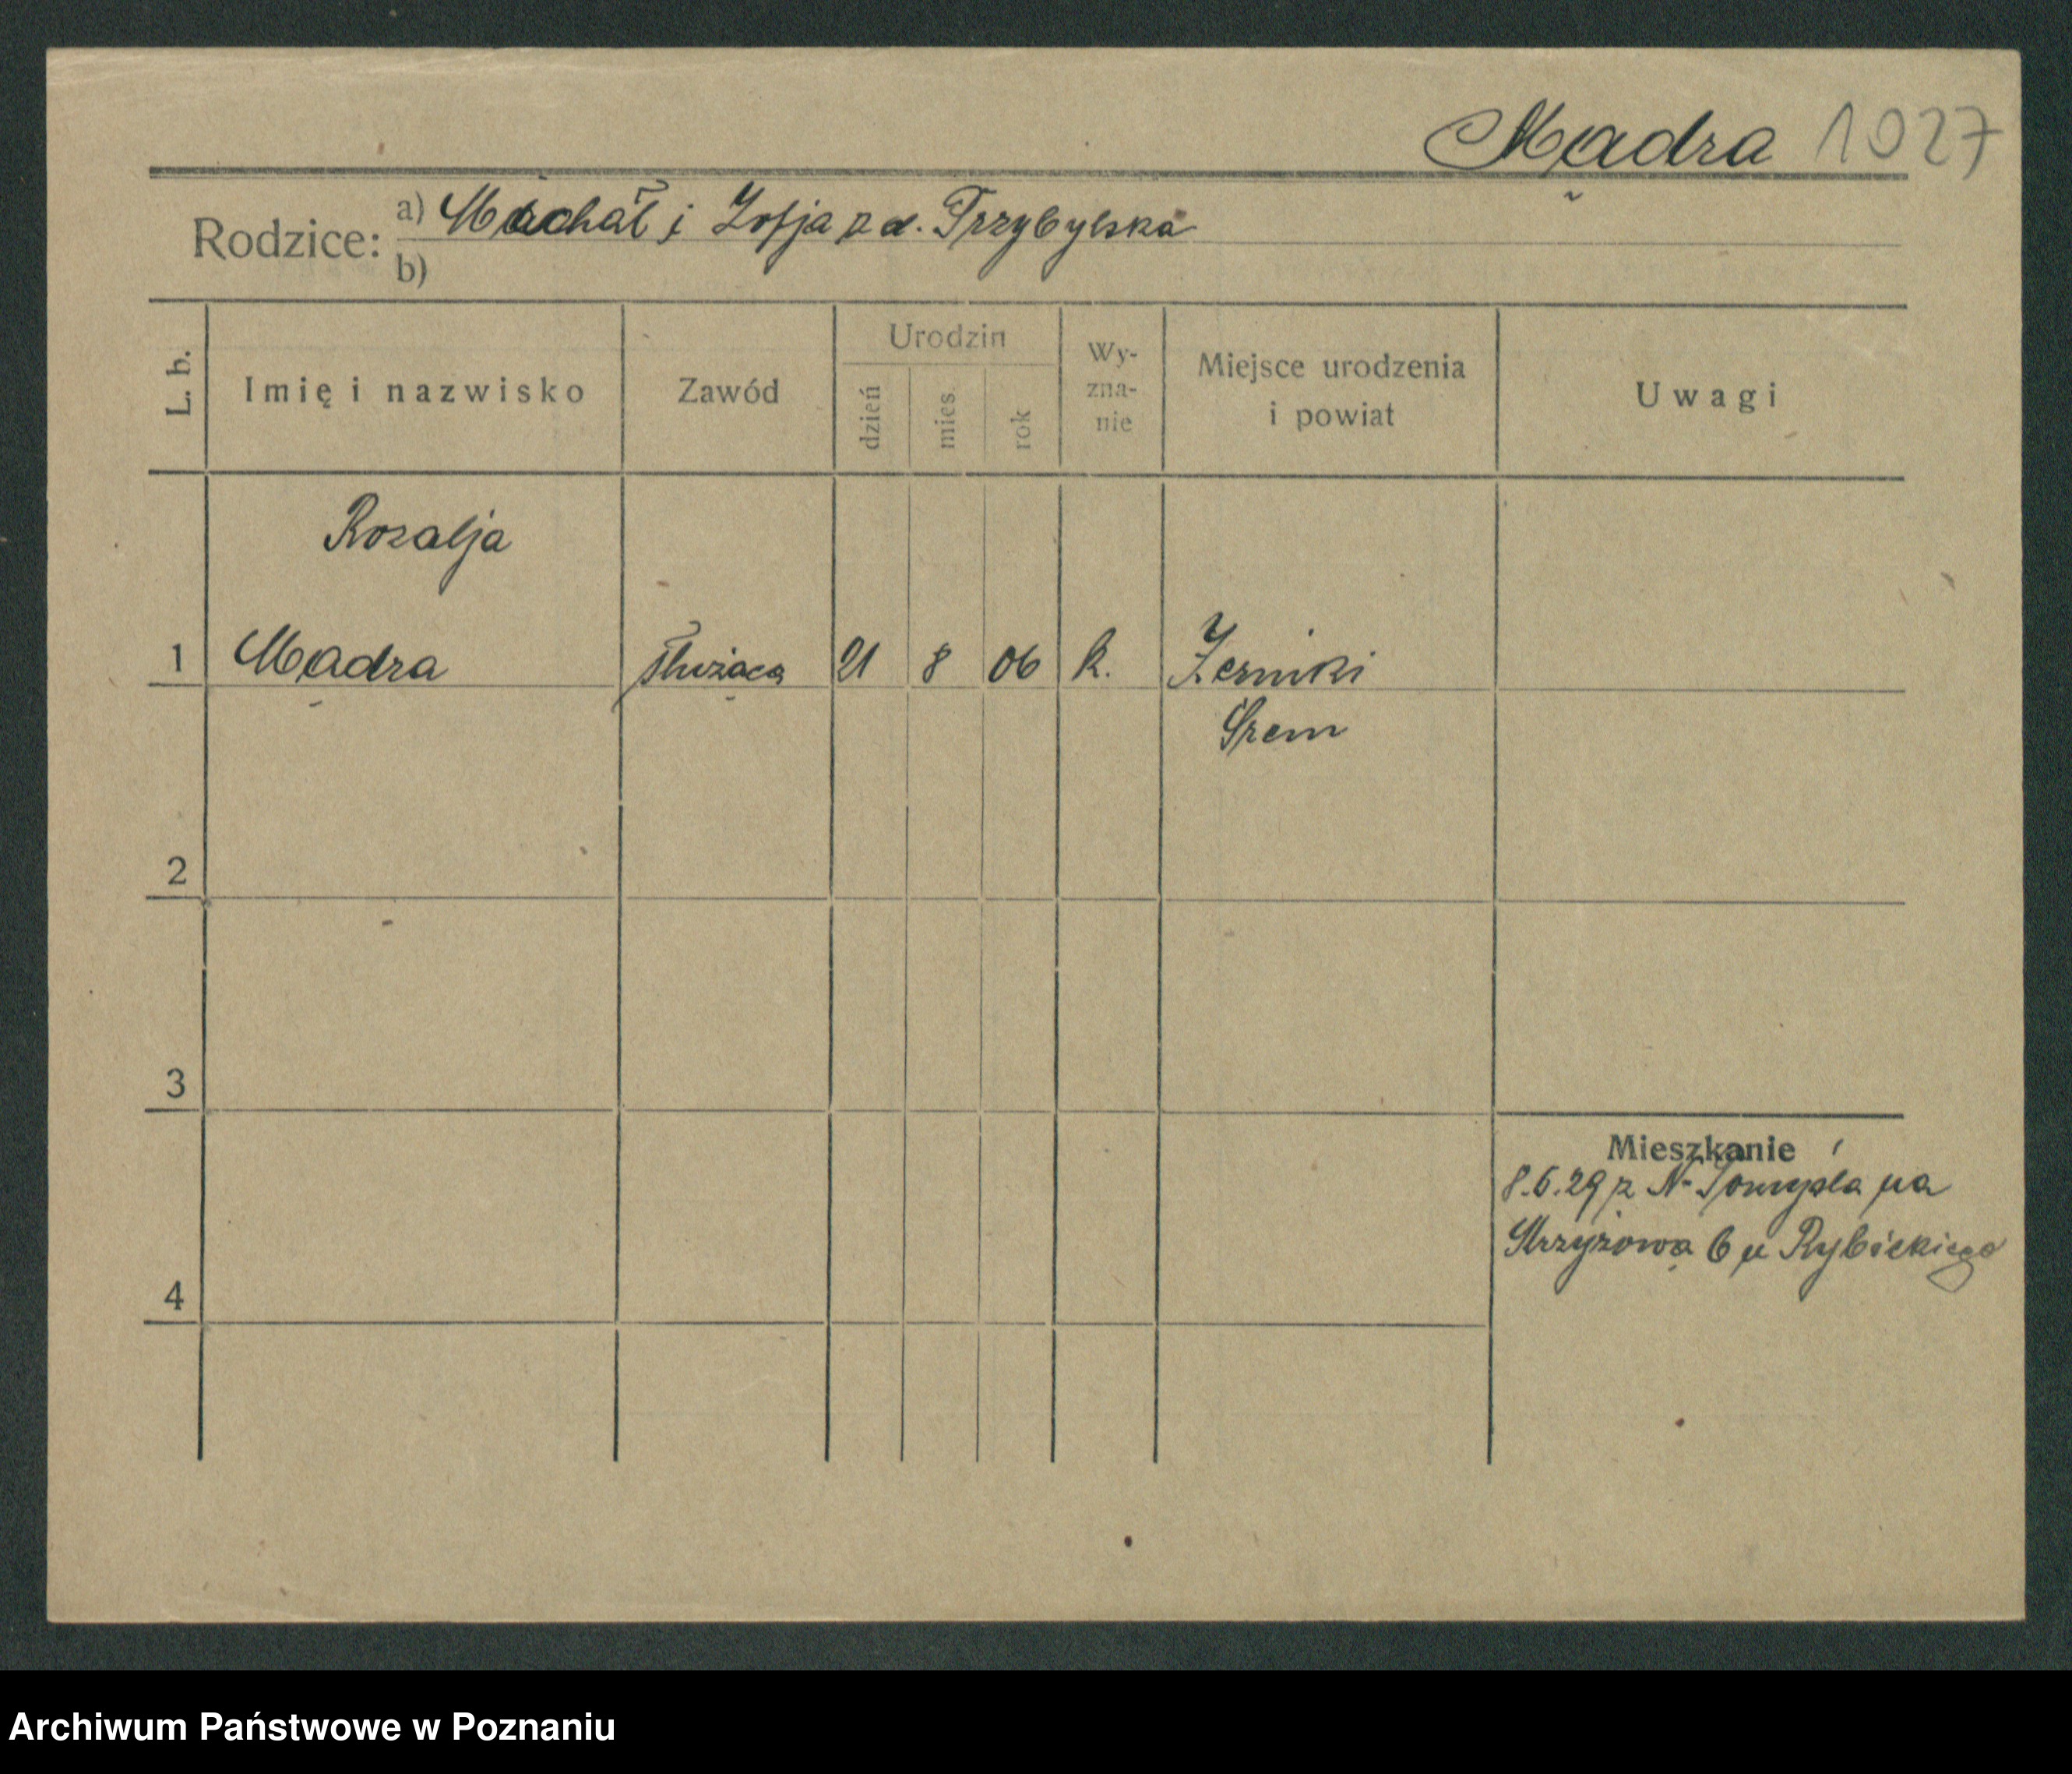 Mądra 1027
Rodzice: a) Michał i Zofja z d. Przybylska
b)
L. b. Imię i nazwisko Zawód Urodzin dzień mies. rok Wy-zna-nie Miejsce urodzenia i powiat Uwagi
Rozalja
1 Mądra służąca 21 8 06 k. Żerniki
Śrem
2
3
Mieszkanie
8.6.29 z N-Tomyśla na
Krzyżową 6 u Rybickiego
4
Archiwum Państwowe w Poznaniu